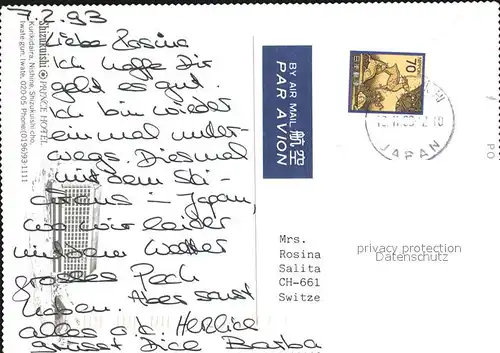 7.2.93
Liebe Rosina
Ich hoffe Dir
geht es gut.
Ich bin wieder
einmal unter-
wegs. Diesmal
mit dem Ski-
circus - Japan,
wo wir leider
mit dem Wetter
grosses Pech
haben. Aber sonst
alles o.k. Herzlich
grüsst Dich Barba
Shizukuishi PRINCE HOTEL
Iwate-gun, Iwate, 020-05 Phone (0196)93-1111
BY AIR MAIL 航空
PAR AVION
70
日本郵便
NIPPON
JAPAN
PO
Mrs.
Rosina
Salita
CH-661
Switze
privacy protection
Datenschutz